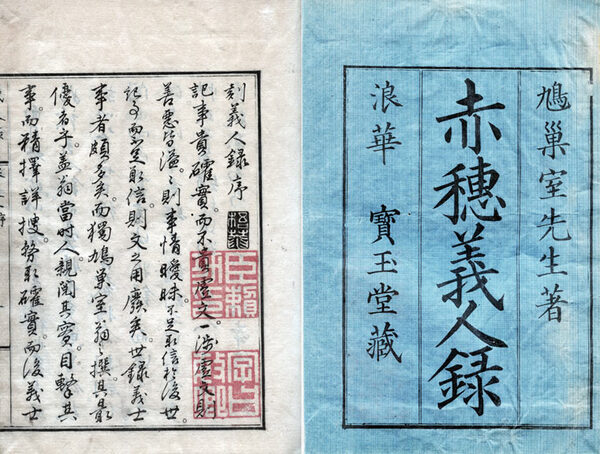 鳩巢室先生著
赤穗義人錄
浪華 寶玉堂藏
刻義人錄序
記事貴確實。而不貴虛文。一涉虛文則
善惡皆溢。則事情曖昧。不足取信於後世。
記事而不足取信。則文之用廢矣。世錄義士
事者頗多矣。而獨鳩巢室翁之撰。其最
優者乎。蓋翁當時人。親聞其實。目擊其
事。而精擇詳搜。務取確實。而後義士